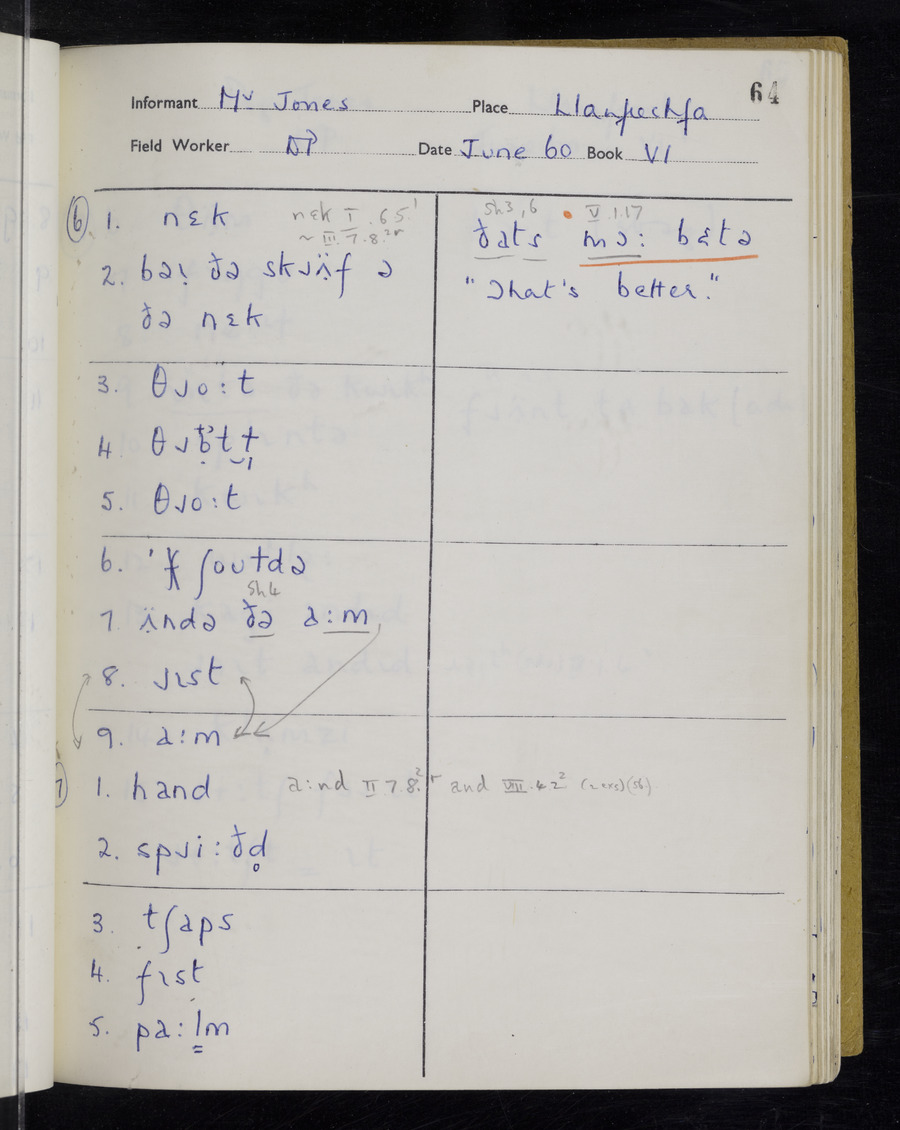 64
Informant Mr Jones Place Llanfrechfa
Field Worker DP Date June 60 Book VI
⑥ 1. nɛk nɛk I .65.¹
~ III.7.8.²ʳ
2. bəɩ ðə skɹïf ə
ðə nɛk
3. θɹo:t
4.
5. θɹo:t
6. ' ʃouɫdə
sh4
7. ïndə ðə a:m
8. ɹɪst
9. a:m
7 1. hand a:nd II 7.8.²ʳ and VIII.4 2² (2 exs)(S6)
2. spɹi:ðd̥
3. tʃaps
4. fɪst
5. pa:lm
sh3,6 V.1.17
ðats mə: bɛtə
"That's better."